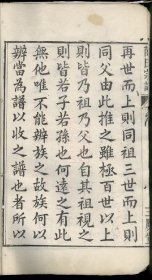 再世而上則同祖三世而上則
同父由此推之雖極百世以上
則皆乃祖乃父也自其祖視之
則皆若子若孫也何遠之有此
無他唯不能辨族之故族何以
辨當為譜以收之譜也者所以